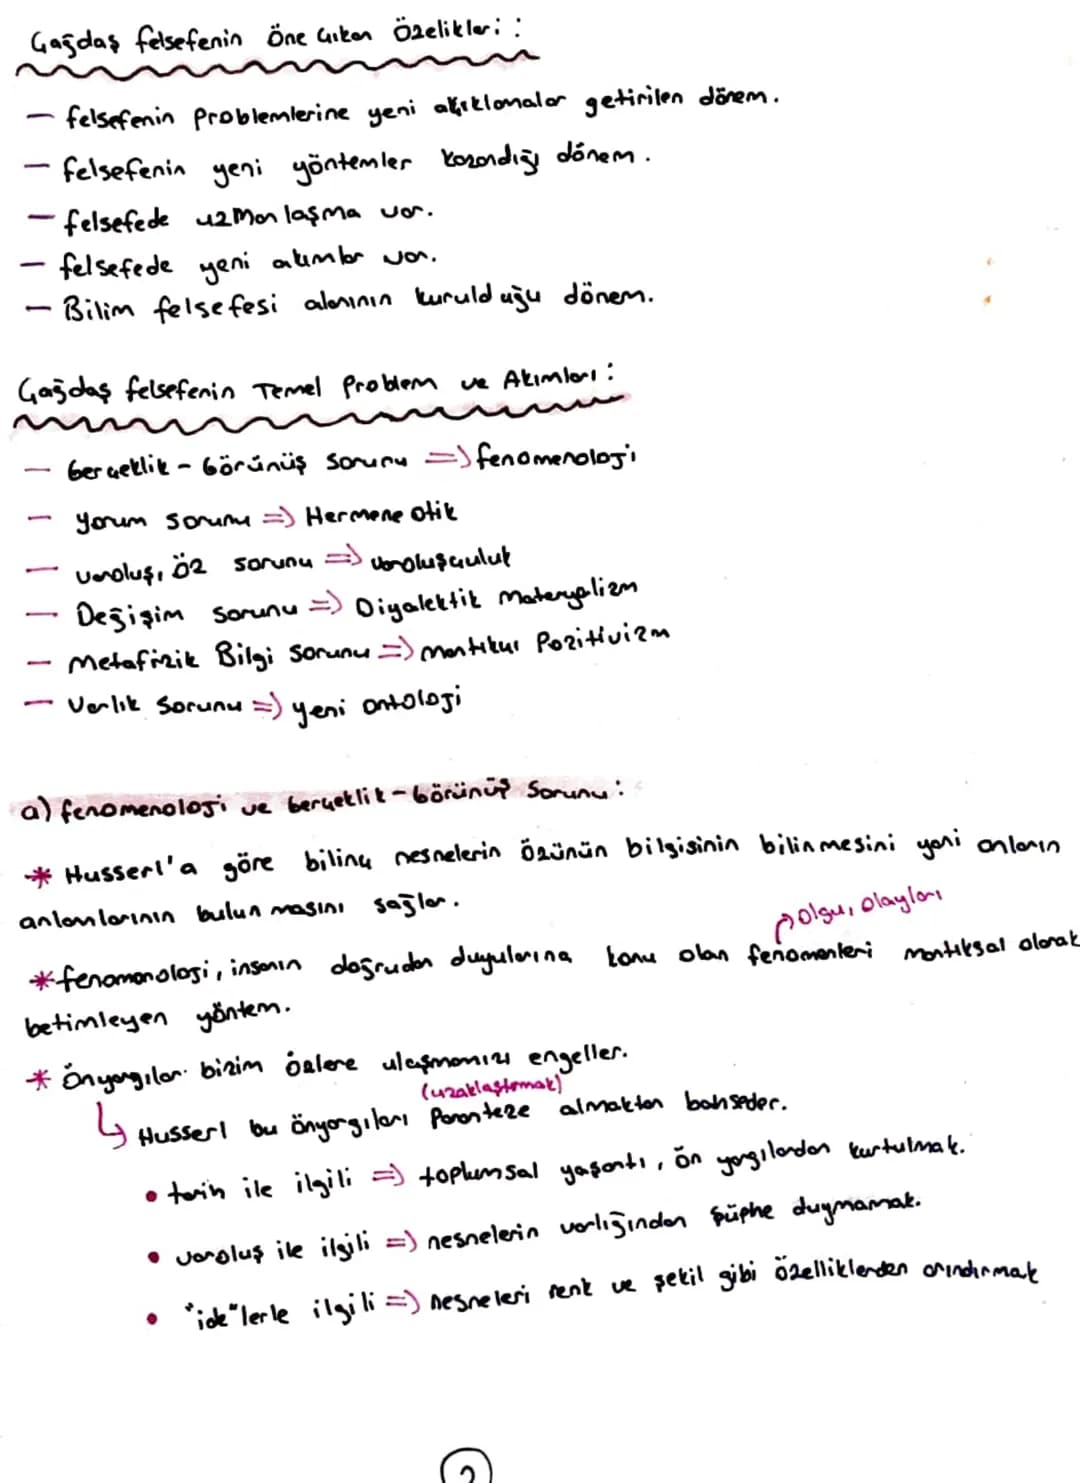 Çağdaş felsefenin Öne Çıkan Özelikleri:
— felsefenin Problemlerine yeni açıklamalar getirilen dönem.
— felsefenin yeni yöntemler kazandığı dönem.
— felsefede uzmanlaşma var.
— felsefede yeni akımlar var.
— Bilim felsefesi alanının kurulduğu dönem.
Çağdaş felsefenin Temel Problem ve Akımları:
— Gerçeklik - Görünüş Sorunu => fenomenoloji
— Yorum sorunu => Hermeneotik
— Varoluş, Öz sorunu => Varoluşçuluk
— Değişim sorunu => Diyalektik Materyalizm
— Metafizik Bilgi Sorunu => Mantıkçı Pozitivizm
— Varlık Sorunu => yeni ontoloji
a) fenomenoloji ve Gerçeklik - Görünüş Sorunu:
* Husserl'a göre bilinç nesnelerin özünün bilgisinin bilinmesini yani onların
anlamlarının bulunmasını sağlar.
olgu, olayları
* fenomonoloji, insanın doğrudan duyularına konu olan fenomenleri mantıksal olarak
betimleyen yöntem.
* Önyargılar bizim özlere ulaşmamızı engeller.
(uzaklaştırmak)
Husserl bu önyargıları Paranteze almaktan bahseder.
• tarih ile ilgili => toplumsal yaşantı, ön yargılardan kurtulmak.
• varoluş ile ilgili => nesnelerin varlığından şüphe duymamak.
• "ide"lerle ilgili => nesneleri renk ve şekil gibi özelliklerden arındırmak
2